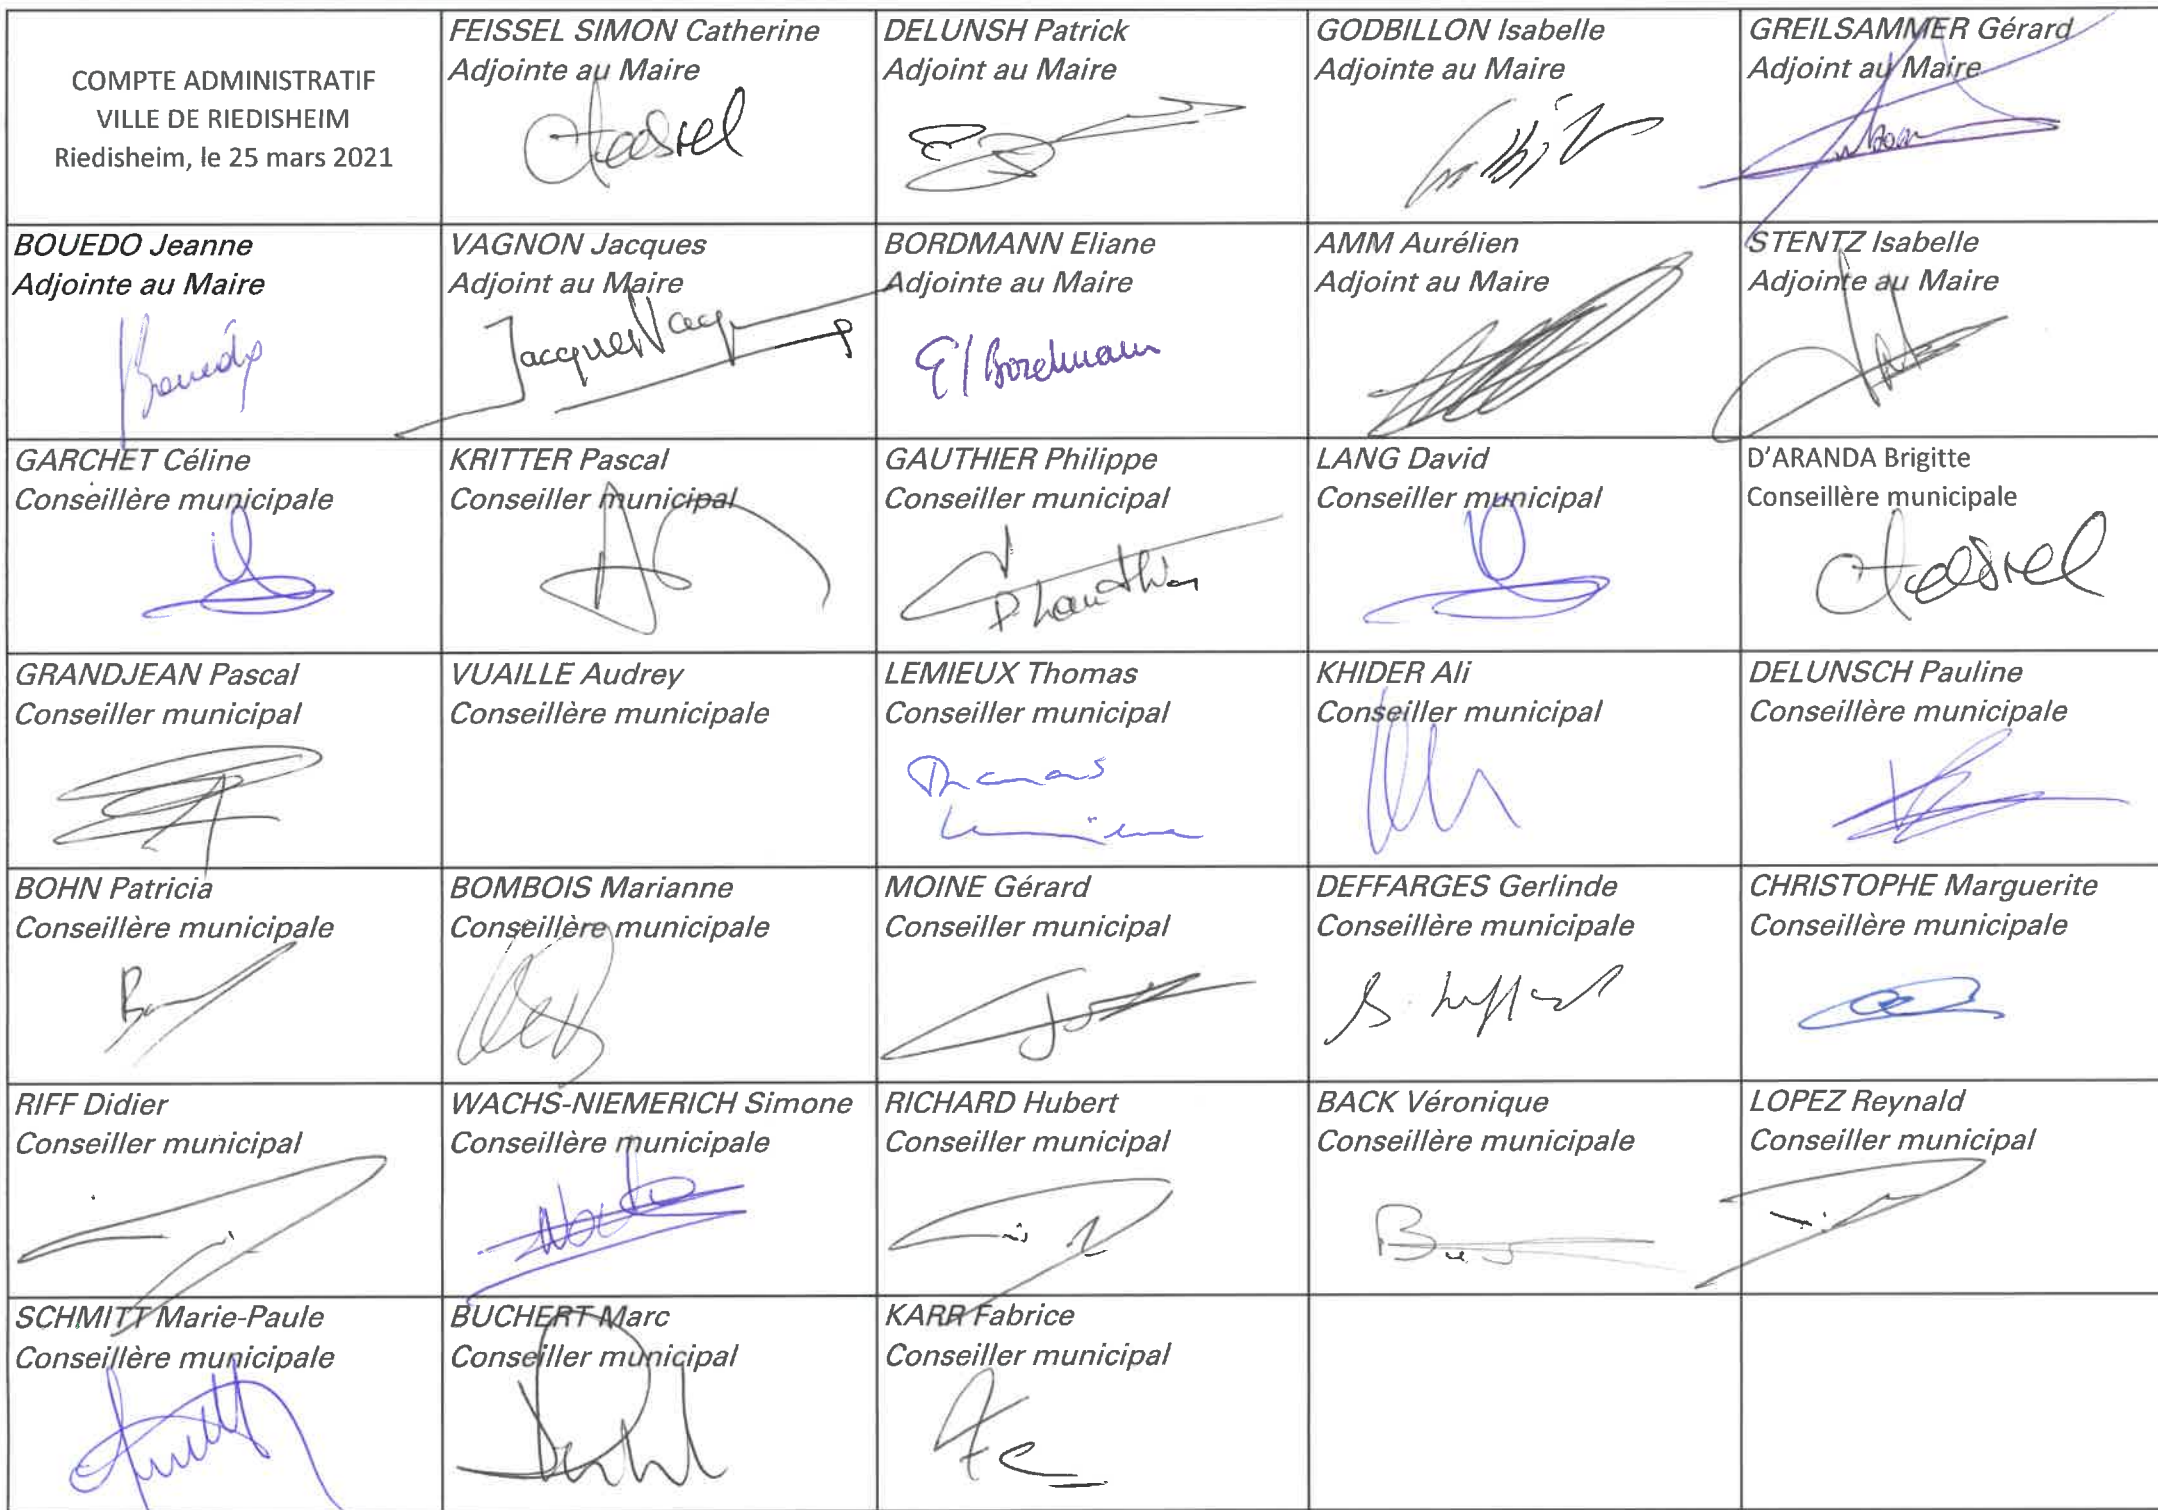 COMPTE ADMINISTRATIF
VILLE DE RIEDISHEIM
Riedisheim, le 25 mars 2021
FEISSEL SIMON Catherine
Adjointe au Maire
DELUNSH Patrick
Adjoint au Maire
GODBILLON Isabelle
Adjointe au Maire
GREILSAMMER Gérard
Adjoint au Maire
BOUEDO Jeanne
Adjointe au Maire
Bouedo
VAGNON Jacques
Adjoint au Maire
Jacques
BORDMANN Eliane
Adjointe au Maire
El Bordmann
AMM Aurélien
Adjoint au Maire
STENTZ Isabelle
Adjointe au Maire
GARCHET Céline
Conseillère municipale
KRITTER Pascal
Conseiller municipal
GAUTHIER Philippe
Conseiller municipal
P. Gauthier
LANG David
Conseiller municipal
D'ARANDA Brigitte
Conseillère municipale
GRANDJEAN Pascal
Conseiller municipal
VUAILLE Audrey
Conseillère municipale
LEMIEUX Thomas
Conseiller municipal
Thomas
Lemieux
KHIDER Ali
Conseiller municipal
DELUNSCH Pauline
Conseillère municipale
BOHN Patricia
Conseillère municipale
BOMBOIS Marianne
Conseillère municipale
MOINE Gérard
Conseiller municipal
DEFFARGES Gerlinde
Conseillère municipale
CHRISTOPHE Marguerite
Conseillère municipale
RIFF Didier
Conseiller municipal
WACHS-NIEMERICH Simone
Conseillère municipale
RICHARD Hubert
Conseiller municipal
BACK Véronique
Conseillère municipale
LOPEZ Reynald
Conseiller municipal
SCHMITT Marie-Paule
Conseillère municipale
BUCHERT Marc
Conseiller municipal
KARR Fabrice
Conseiller municipal